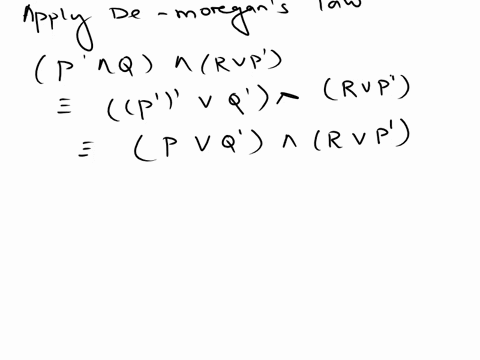 Apply De-moregan's law
(P' ∧ Q) ∧ (R ∨ P')
≡ ((P')' ∨ Q') ∧ (R ∨ P')
≡ (P ∨ Q') ∧ (R ∨ P')